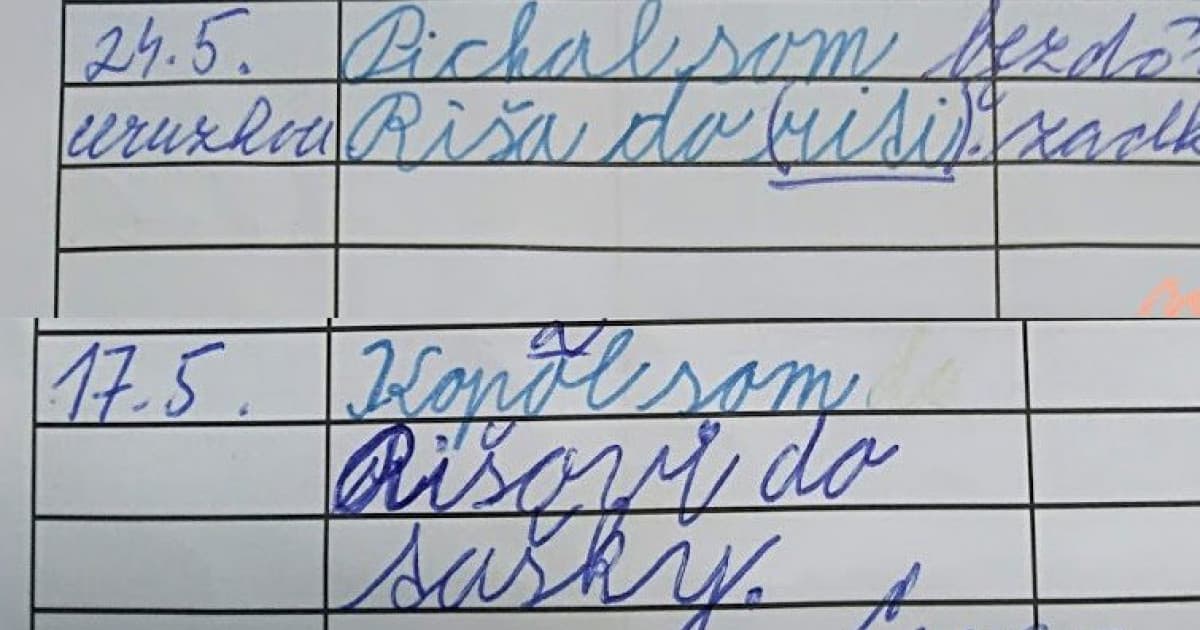 24.5. Pichal som bezdô
ceruzkou Riša do (riti). zadk
17.5. Kopal som
Rišovi do
tašky.